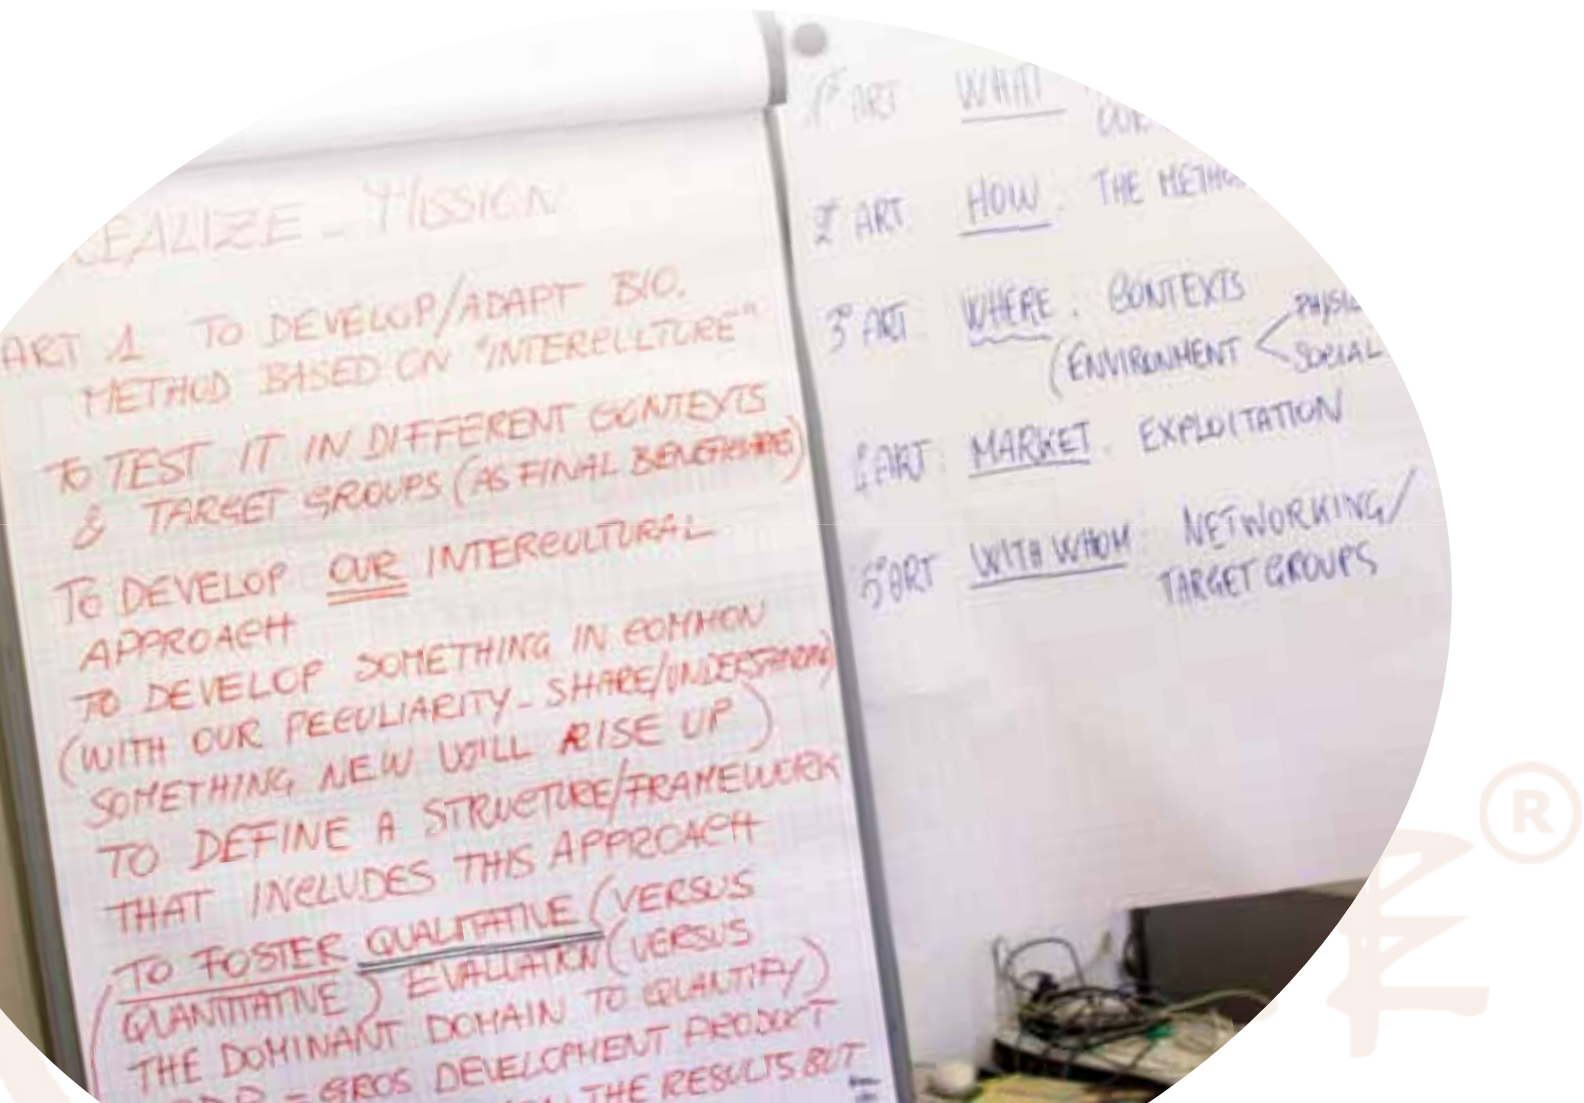 EALIZE - MISSION
ART 1 TO DEVELOP/ADAPT BIO.
METHOD BASED ON "INTERCULTURE"
TO TEST IT IN DIFFERENT CONTEXTS
& TARGET GROUPS (AS FINAL
TO DEVELOP OUR INTERCULTURAL
APPROACH
TO DEVELOP SOMETHING IN COMMON
(WITH OUR PECULIARITY - SHARE/UNDERSTANDING
SOMETHING NEW WILL RISE UP)
TO DEFINE A STRUCTURE/FRAMEWORK
THAT INCLUDES THIS APPROACH
(TO FOSTER QUALITATIVE (VERSUS
QUANTITATIVE) EVALUATION (VERSUS
THE DOMINANT DOMAIN TO QUANTIFY)
= GROS DEVELOPMENT PRODUCT
THE RESULTS BUT
1° ART WHAT
2° ART. HOW. THE METHO
3° ART. WHERE. CONTEXTS
(ENVIRONMENT < PHYSIC
SOCIAL
ART. MARKET. EXPLOITATION
5° ART WITH WHOM: NETWORKING/
TARGET GROUPS
®